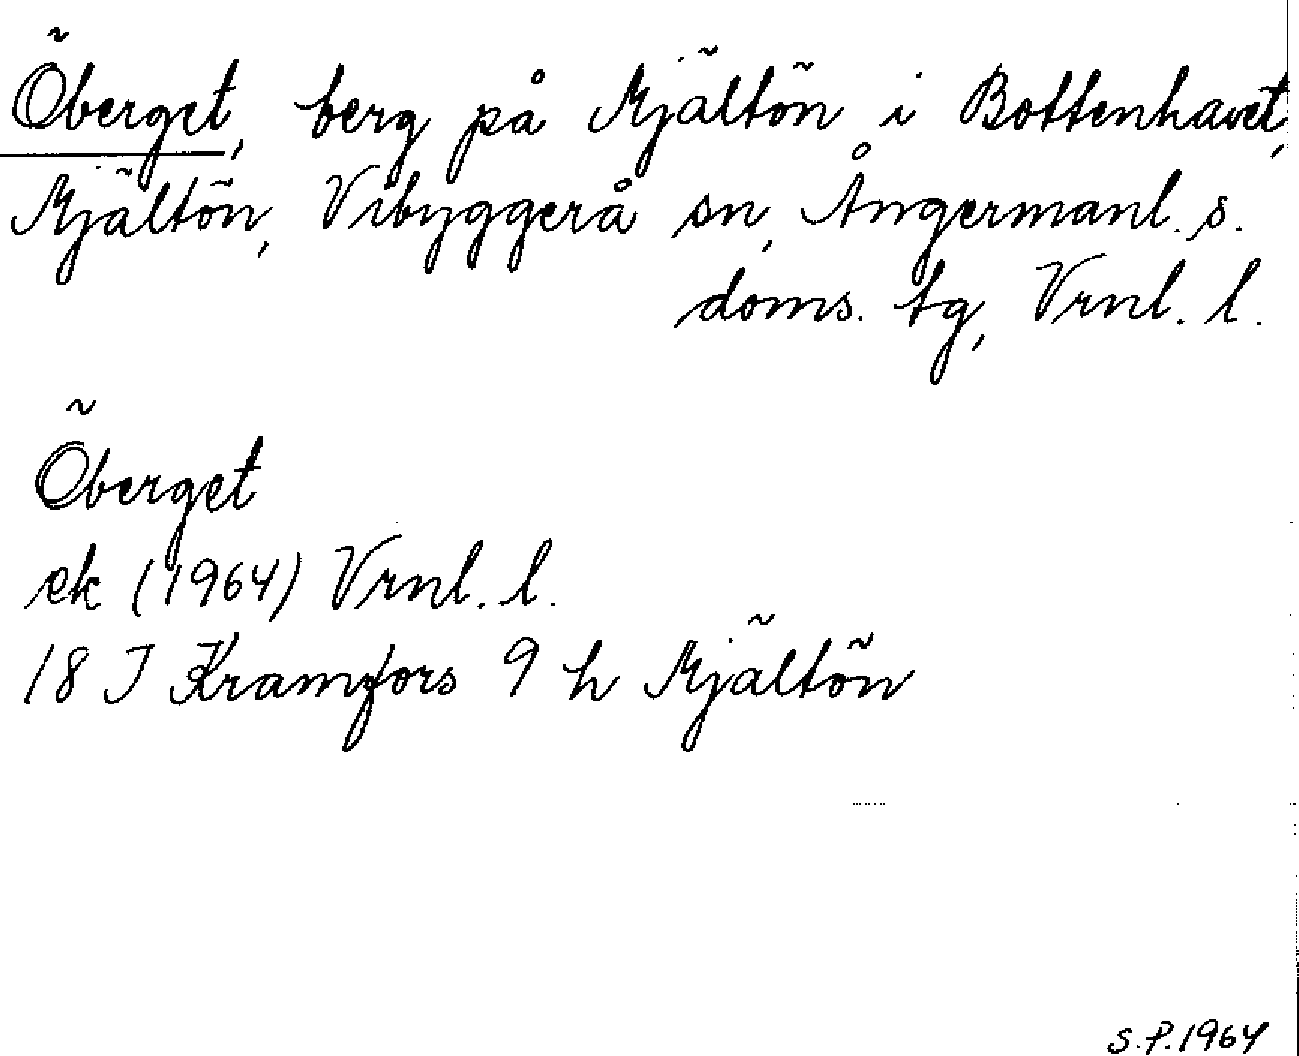 Öberget, berg på Mjältön i Bottenhavet,
Mjältön, Vibyggerå sn, Ångermanl. s.
doms. tg, Vrnl. l.
Öberget
ek (1964) Vrnl. l.
18 I Kramfors 9 h Mjältön
S.P. 1964